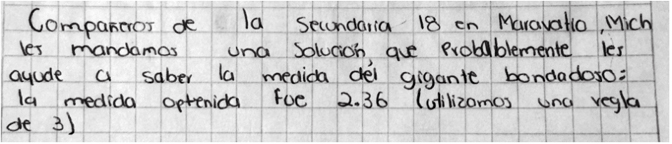 Compañeros de la Secundaria 18 en Maravatío, Mich
les mandamos una Solución, que Probablemente les
ayude a saber la medida del gigante bondadoso:
la medida optenida Foe 2.36 (utilizamos una regla
de 3)